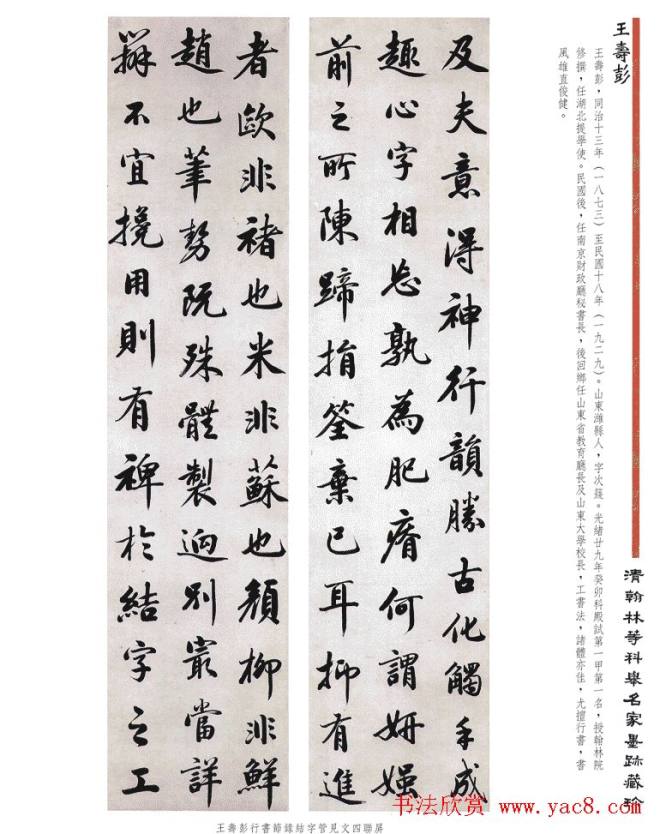 王壽彭
王壽彭，同治十三年（一八七三）至民國十八年（一九二九）。山東濰縣人，字次籛。光緒廿九年癸卯科殿試第一甲第一名，授翰林院
修撰，任湖北提學使。民國後，任南京財政廳秘書長，後回鄉任山東省教育廳長及山東大學校長，工書法，諸體亦佳，尤擅行書，書
風雄直俊健。
清翰林等科舉名家墨跡藏珍
及夫意得神行韻勝古化觸手成
趣心字相忘孰為肥瘠何謂妍媸
前之所陳蹄捐筌棄已耳抑有進
者歐非褚也米非蘇也顏柳非鮮
趙也筆勢既殊體製迥別嘗當詳
辨不宜攙用則有裨於結字之工
王壽彭行書節錄結字管見文四聯屏
书法欣赏 www.yac8.com